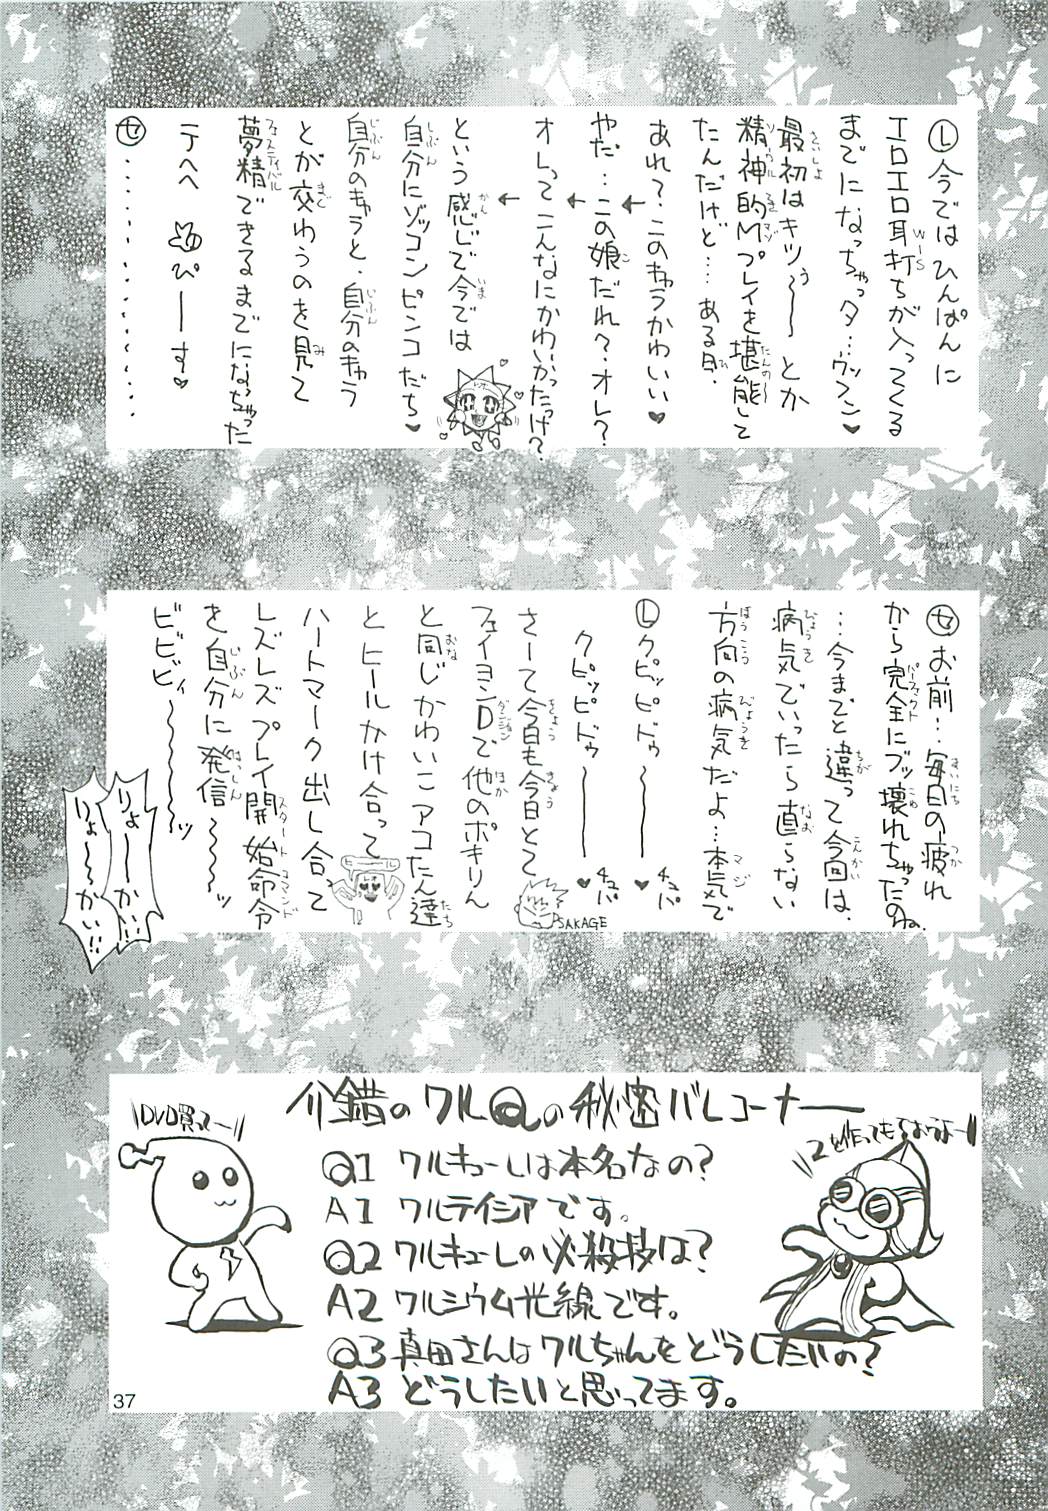 Ⓛ今ではひんぱんに
エロエロ耳打ちが入ってくる
までになっちゃっタ…ウッフン♥
最初はキツ〜〜〜とか
精神的Mプレイを堪能して
たんだけど…ある日、
あれ?このキャラかわいい♥
↓
やだ…この娘だれ?オレ?
↓
オレってこんなにかわいかったっけ?
↓
という感じで今では
自分にゾッコンピンコだち♥
自分のキャラと、自分のキャラ
とが交わうのを見て
夢精できるまでになっちゃった
テヘヘ ぴーす♥
㋝・・・・・・・・・・・・
㋝お前…毎日の疲れ
から完全にブッ壊れちゃったのね、
…今までと違って今回は、
病気でいったら直らない
方向の病気だよ…本気で
Ⓛクピッピドゥ〜〜〜♥チュパ
クピッピドゥ〜〜〜♥チュパ
さーて今日も今日とて
フェイヨンDで他のポキリん
と同じかわいこアコたん達
とヒールかけ合って
ハートマーク出し合って
レズレズプレイ開始命令
を自分に発信〜〜〜ッ
ビビビィ〜〜〜〜ッ
りょーーかい!!
りょ〜〜かい!!
SAKAGE
ヒール
介錯のワルQの秘密バレコーナー
\DVD買って〜/
\\2も作ってもらおうよー\\
Q1 ワルキューレは本名なの?
A1 ワルテイシアです。
Q2 ワルキューレの必殺技は?
A2 ワルシウム光線です。
Q3 真田さんはワルちゃんをどうしたいの?
A3 どうしたいと思ってます。
37